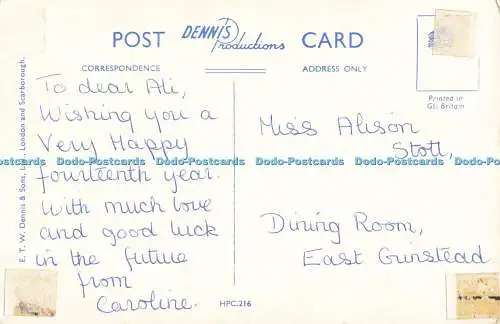 POST DENNIS Productions CARD
CORRESPONDENCE
ADDRESS ONLY
Printed in
Gt. Britain
To dear Ali,
Wishing you a
Very Happy
fourteenth year.
With much love
and good luck
in the future
from
Caroline.
Miss Alison
Stott,
Dining Room,
East Grinstead
HPC.216
E. T. W. Dennis & Sons, Ltd., London and Scarborough.
Dodo-Postcards Dodo-Postcards Dodo-Postcards Dodo-Postcards Dodo-Postcards